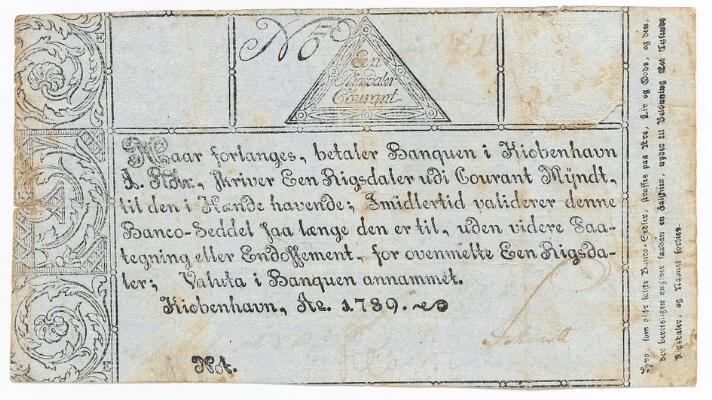 No
Een
Rigsdaler
Courant
Naar forlanges, betaler Banquen i Kiobenhavn
A. Rdr., skriver Een Rigsdaler udi Courant Mÿndt,
til den i Hænde havende; Imidlertid validerer denne
Banco-Seddel saa længe den er til, uden videre Paa-
tegning eller Endossement, for ovenmelte Een Rigsda-
ler; Valuta i Banquen annammet.
Kiobenhavn, Ao. 1789.
Not.
hvo, som disse falske Banco-Sedler, straffes paa Ære, Liv og Gods, og den,
der beviisligen angiver saadan en Falskner, nyder til Belønning
Rigsdaler, og Navnet forties.